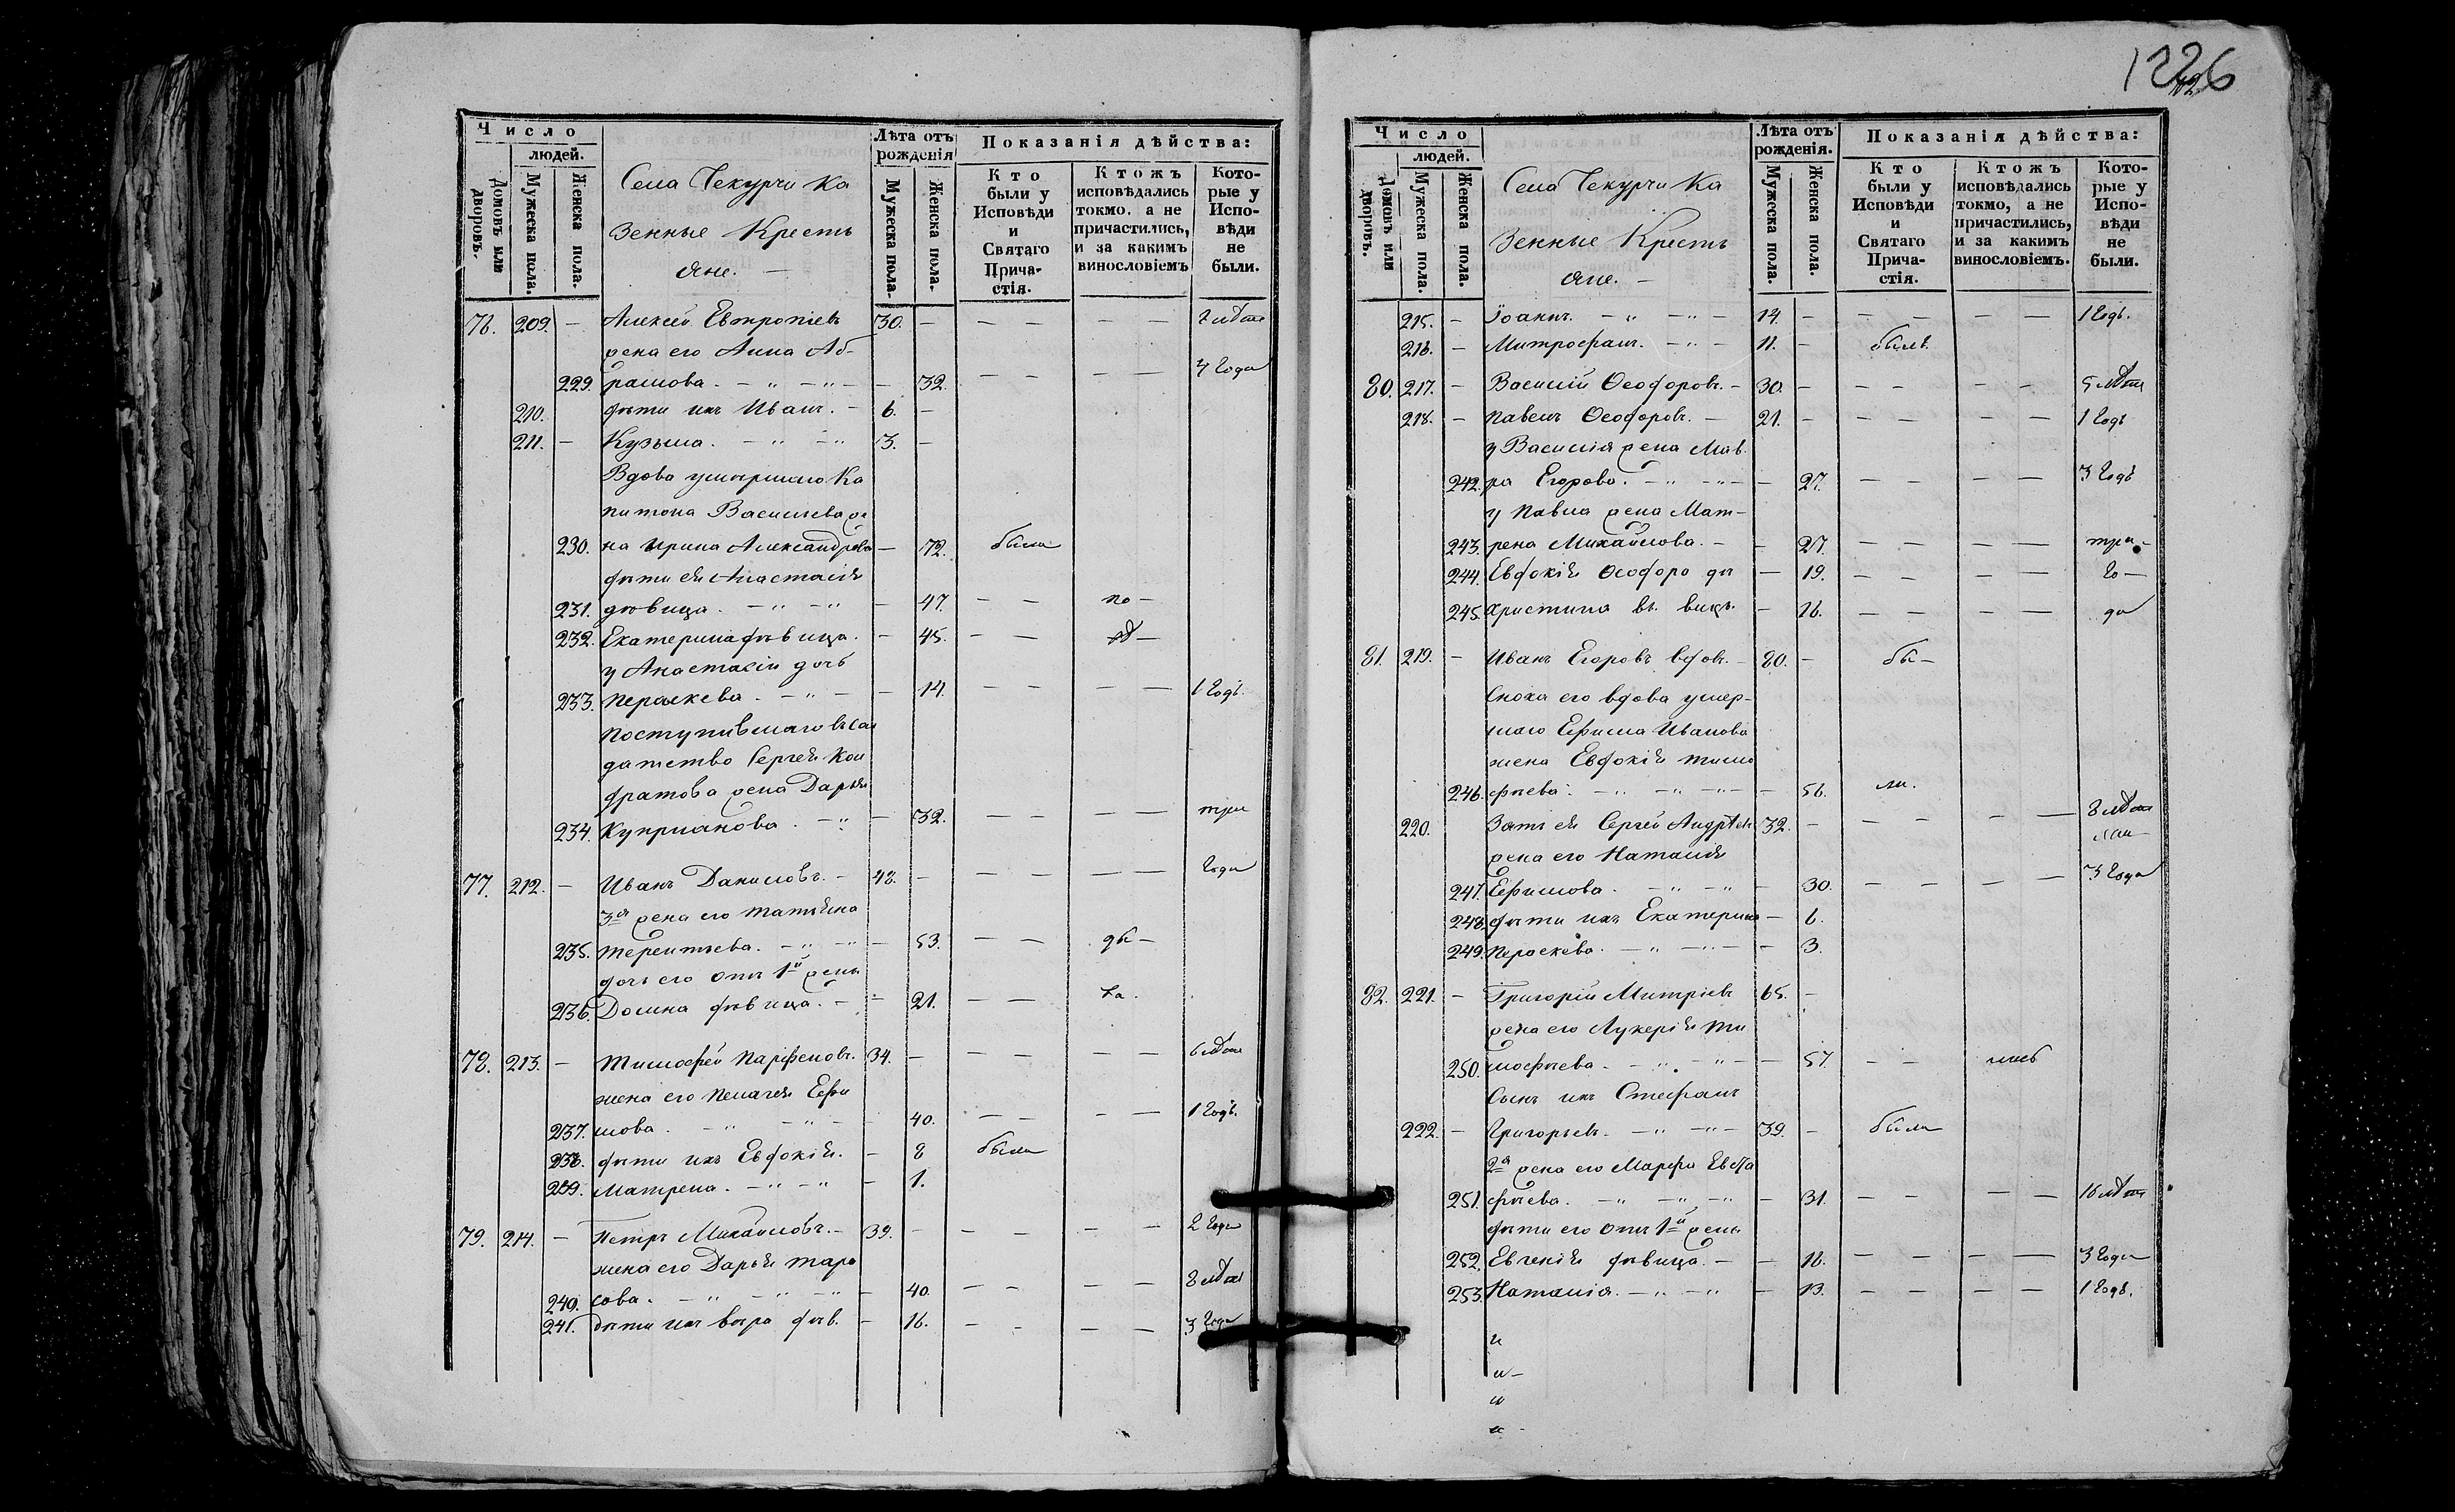 Число
людей.
Домовъ или дворовъ.
Мужеска пола.
Женска пола.
Села Чекурчи Ка
зенные Кресть
яне. —
Лѣта отъ рожденія
Мужеска пола.
Женска пола.
Показанія дѣйства:
Кто были у Исповѣди и Святаго Причастія.
Ктожъ исповѣдались токмо, а не причастились, и за какимъ винословіемъ
Которые у Исповѣди не были.
76. 209. — Алексѣй Евтропіевъ 30. — — — — —
жена его Анна Аб-
229. рамова. — „ — „ — — 32. — — — — 4 года
210. дѣти ихъ Иванъ. — 6. —
211. — Кузьма. — „ — „ 3. —
Вдова умершаго Ка
питона Васильева же
230. на Ирина Александрова — 72. была
дѣти ея Анастасія
231. дѣвица. — „ — „ — 47. — — по —
232. Екатерина дѣвица. — 45. — —
у Анастасіи дочь
233. Параскева. — „ — — 14. — — — — 1 годъ.
Поступившаго въ сол
датство Сергѣя Кон
дратова жена Дарья
234. Куприанова. — „ — 32. — — — — три
77. 212. — Иванъ Даниловъ. — 48. — — — — — года
3я жена его Татьяна
235. Терентьева. — „ — „ — 53. — — ды —
дочь его отъ 1й жены
236. Домна дѣвица. — — 21. — — ха.
78. 213. — Тимофей Парфеновъ. 34. — — — — — 6 лѣтъ
жена его Пелагея Ефи
237. мова. — „ — „ — 40. — — — — 1 годъ.
238. дѣти ихъ Евдокія. — 8 была
239. Матрена. — „ — „ — 1.
79. 214. — Петръ Михайловъ. — 39. — — — — — 2 года
жена его Дарья Тара
240. сова. — „ — „ — „ — 40. — — — — 8 лѣтъ
241. дѣти ихъ Вѣра дѣв. — 16. — — — — 3 года
1226
Число
людей.
Домовъ или дворовъ.
Мужеска пола.
Женска пола.
Села Чекурчи Ка
зенные Кресть
яне. —
Лѣта отъ рожденія.
Мужеска пола.
Женска пола.
Показанія дѣйства:
Кто были у Исповѣди и Святаго Причастія.
Ктожъ исповѣдались токмо, а не причастились, и за какимъ винословіемъ.
Которые у Исповѣди не были.
215. — Іоаннъ. — „ — „ — 14. — — — — — 1 годъ.
216. — Митрофанъ. — „ — 11. — былъ.
80. 217. — Василій Ѳеодоровъ. — 30. — — — — — 5 лѣтъ
218. — Павелъ Ѳеодоровъ. — 21. — — — — — 1 годъ
у Василія жена Мав-
242. ра Егорова. — „ — „ — — 27. — — — — 3 годъ
у Павла жена Мат-
243. рена Михайлова. — — 27. — — — — три —
244. Евдокія Ѳеодоро дѣ — 19. — — — — го —
245. Христина — 16. — — — — да
81. 219. — Иванъ Егоровъ вдов. — 80. — бы —
Сноха его вдова умер-
шаго Ефима Иванова
жена Евдокія Тимо
246. фѣева. — „ — „ — „ — — 56. ли.
220. Зять ея Сергѣй Андреев 32. — — — — — 8 лѣтъ
жена его Наталія
247. Ефимова. — „ — „ — 30. — — — — 3 года
248. дѣти ихъ Екатерина — 6.
249. Параскева. — „ — „ — — 3.
82. 221. — Григорій Митріевъ 65. —
жена его Лукерія Ти
250. мофѣева. — „ — „ — — 57. — —
Сынъ ихъ Стефанъ
222. — Григорьевъ. — „ — „ — 39. — были
2я жена его Марфа Евста
251. фѣева. — „ — „ — „ — 31. — — — — 16 лѣтъ
дѣти его отъ 1й жены
252. Евгенія дѣвица. — — 18. — — — — 3 года
253. Наталія. — „ — „ — 13. — — — — 1 годъ.
и
и —
и
и -